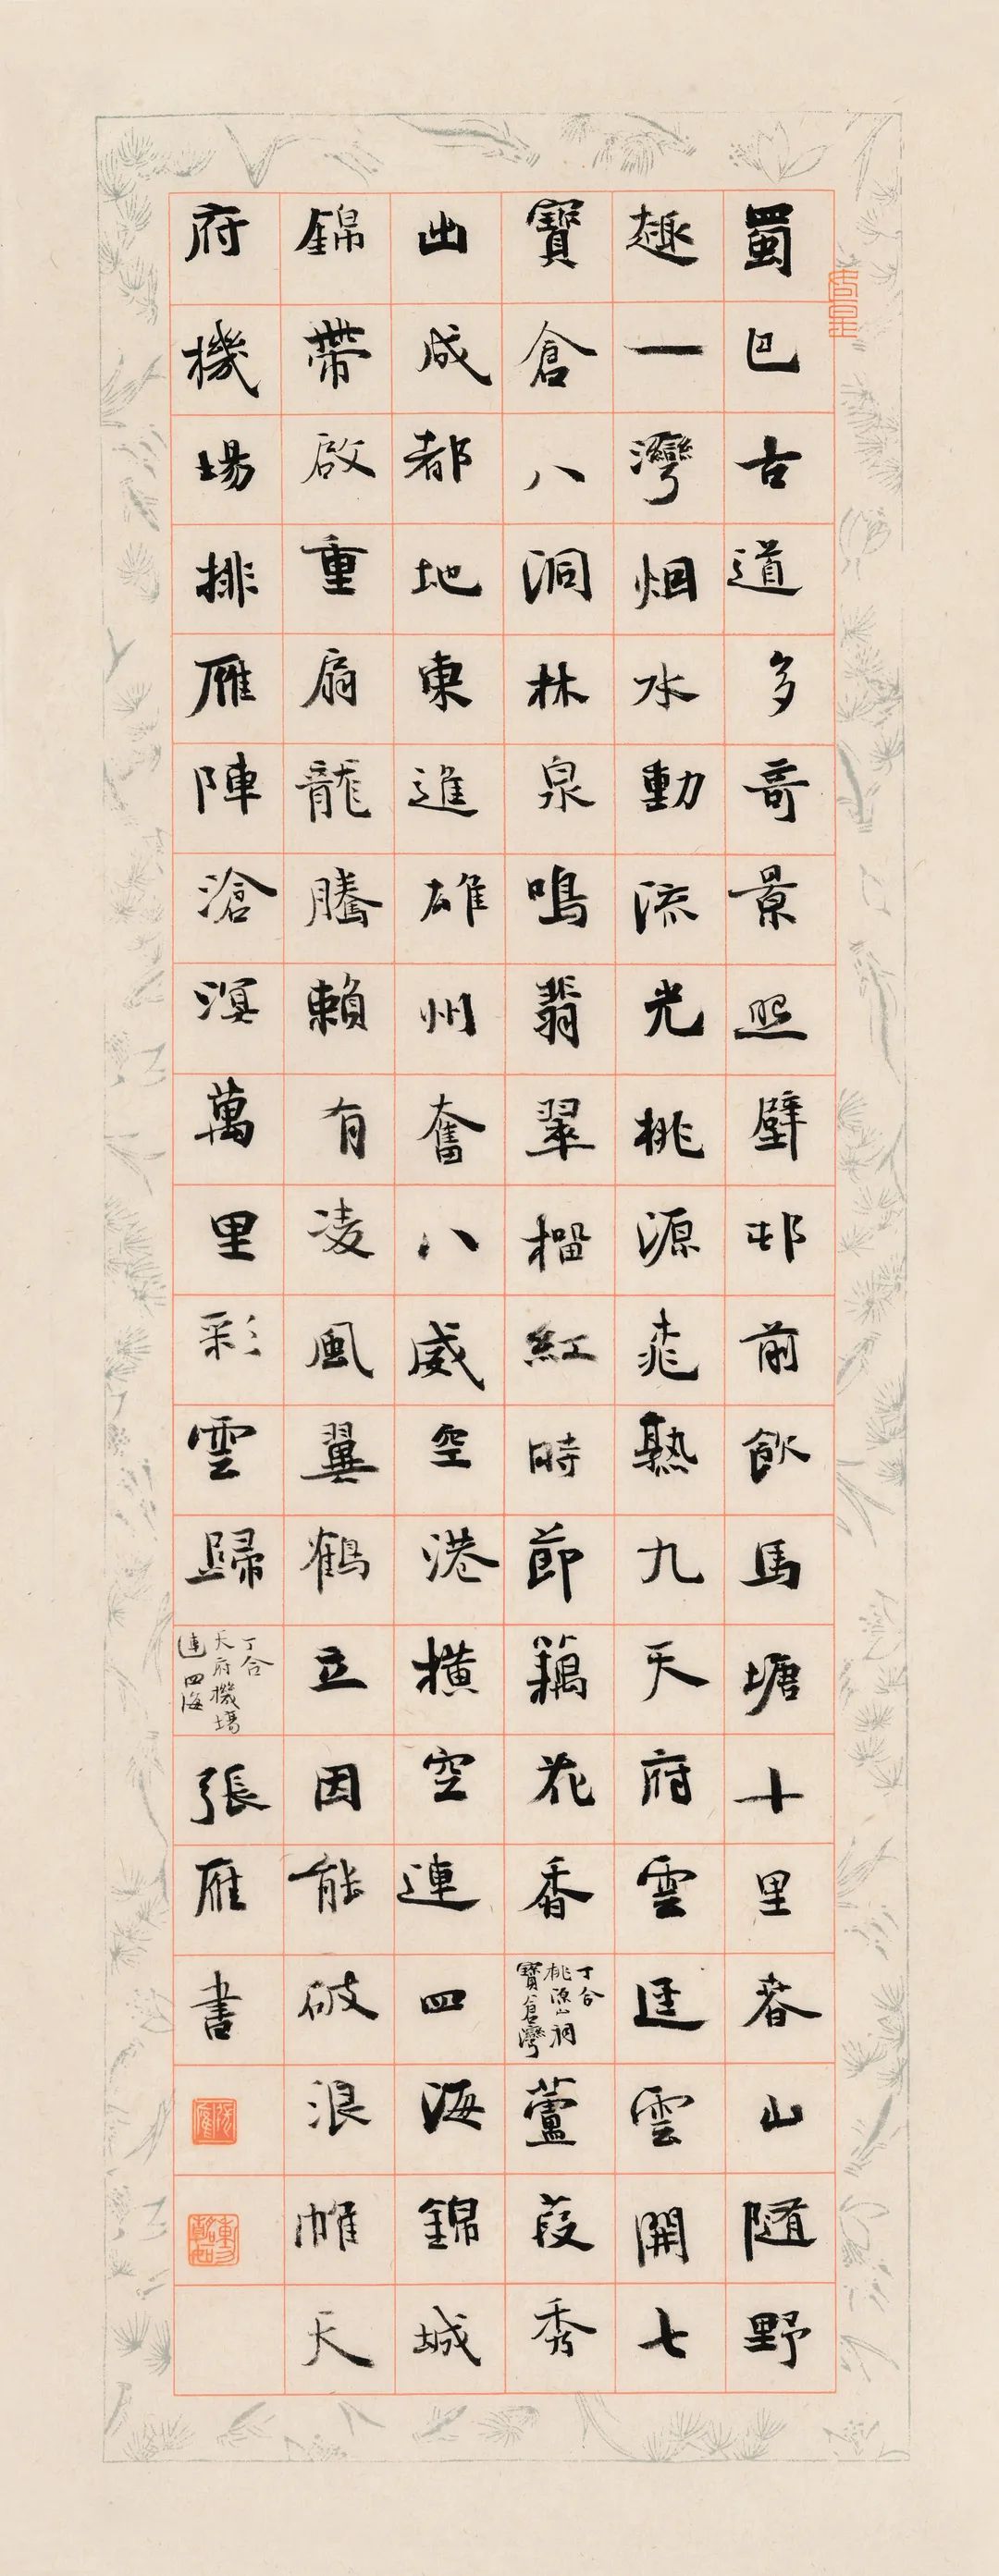 蜀巴古道多奇景照壁邨前飲馬塘十里春山隨野
趣一灣烟水動流光桃源桃熟九天府雲雲開七
寶倉八洞林泉鳴翡翠榴紅時節藕花香
丁合
桃源山祠
寶倉灣
蘆葭秀
出成都地東進雄州奮八威空港橫空連四海錦城
錦帶啟重扇龍騰賴有凌風翼鶴立因能破浪帷天
府機場排雁陣滄溟萬里彩雲歸
丁合
天府機場
連四海
張雁書
張雁